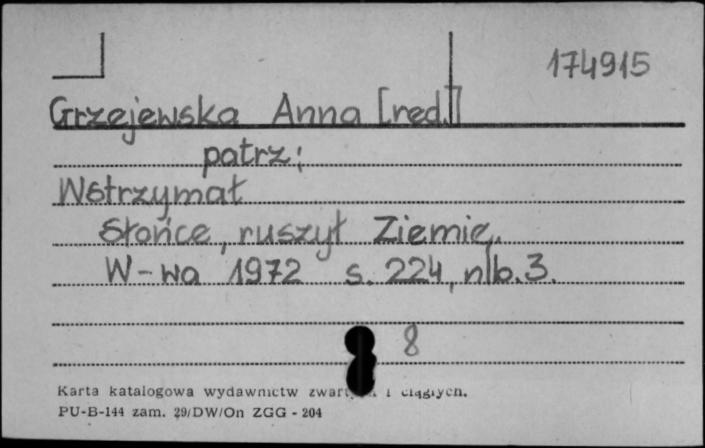 174915
Grzejewska Anna [red.]
patrz:
Wstrzymał
Słońce, ruszył Ziemię.
W-wa 1972 s. 224, nlb. 3.
8
Karta katalogowa wydawnictw i ciągłych.
PU-B-144 zam. 29/DW/On ZGG - 204